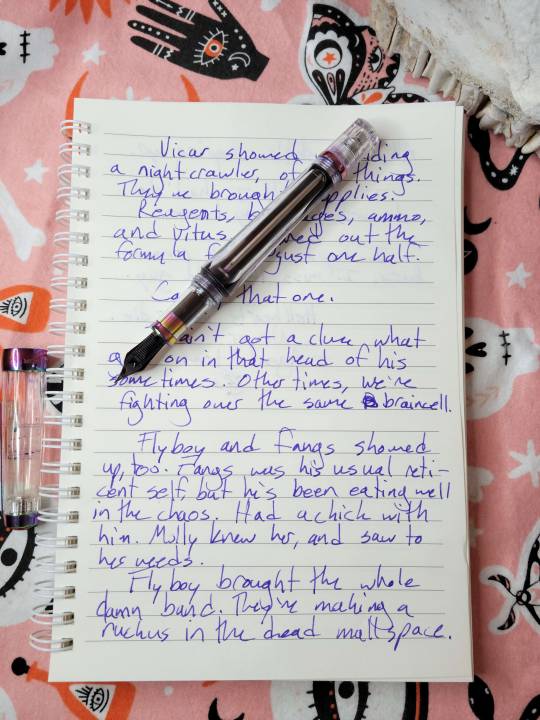 Vicar showed
a nightcrawler, of things.
They've brough pplies.
Reagents, b des, ammo,
and Vitus ed out the
formula f just one half.
Ca that one.
ain't got a clue what
on in that head of his
sometimes. Other times, we're
fighting over the same braincell.
Flyboy and Fangs showed
up, too. Fangs was his usual reti-
cent self, but he's been eating well
in the chaos. Had a chick with
him. Molly knew her, and saw to
her needs.
Flyboy brought the whole
damn band. They're making a
ruckus in the dead mallspace.